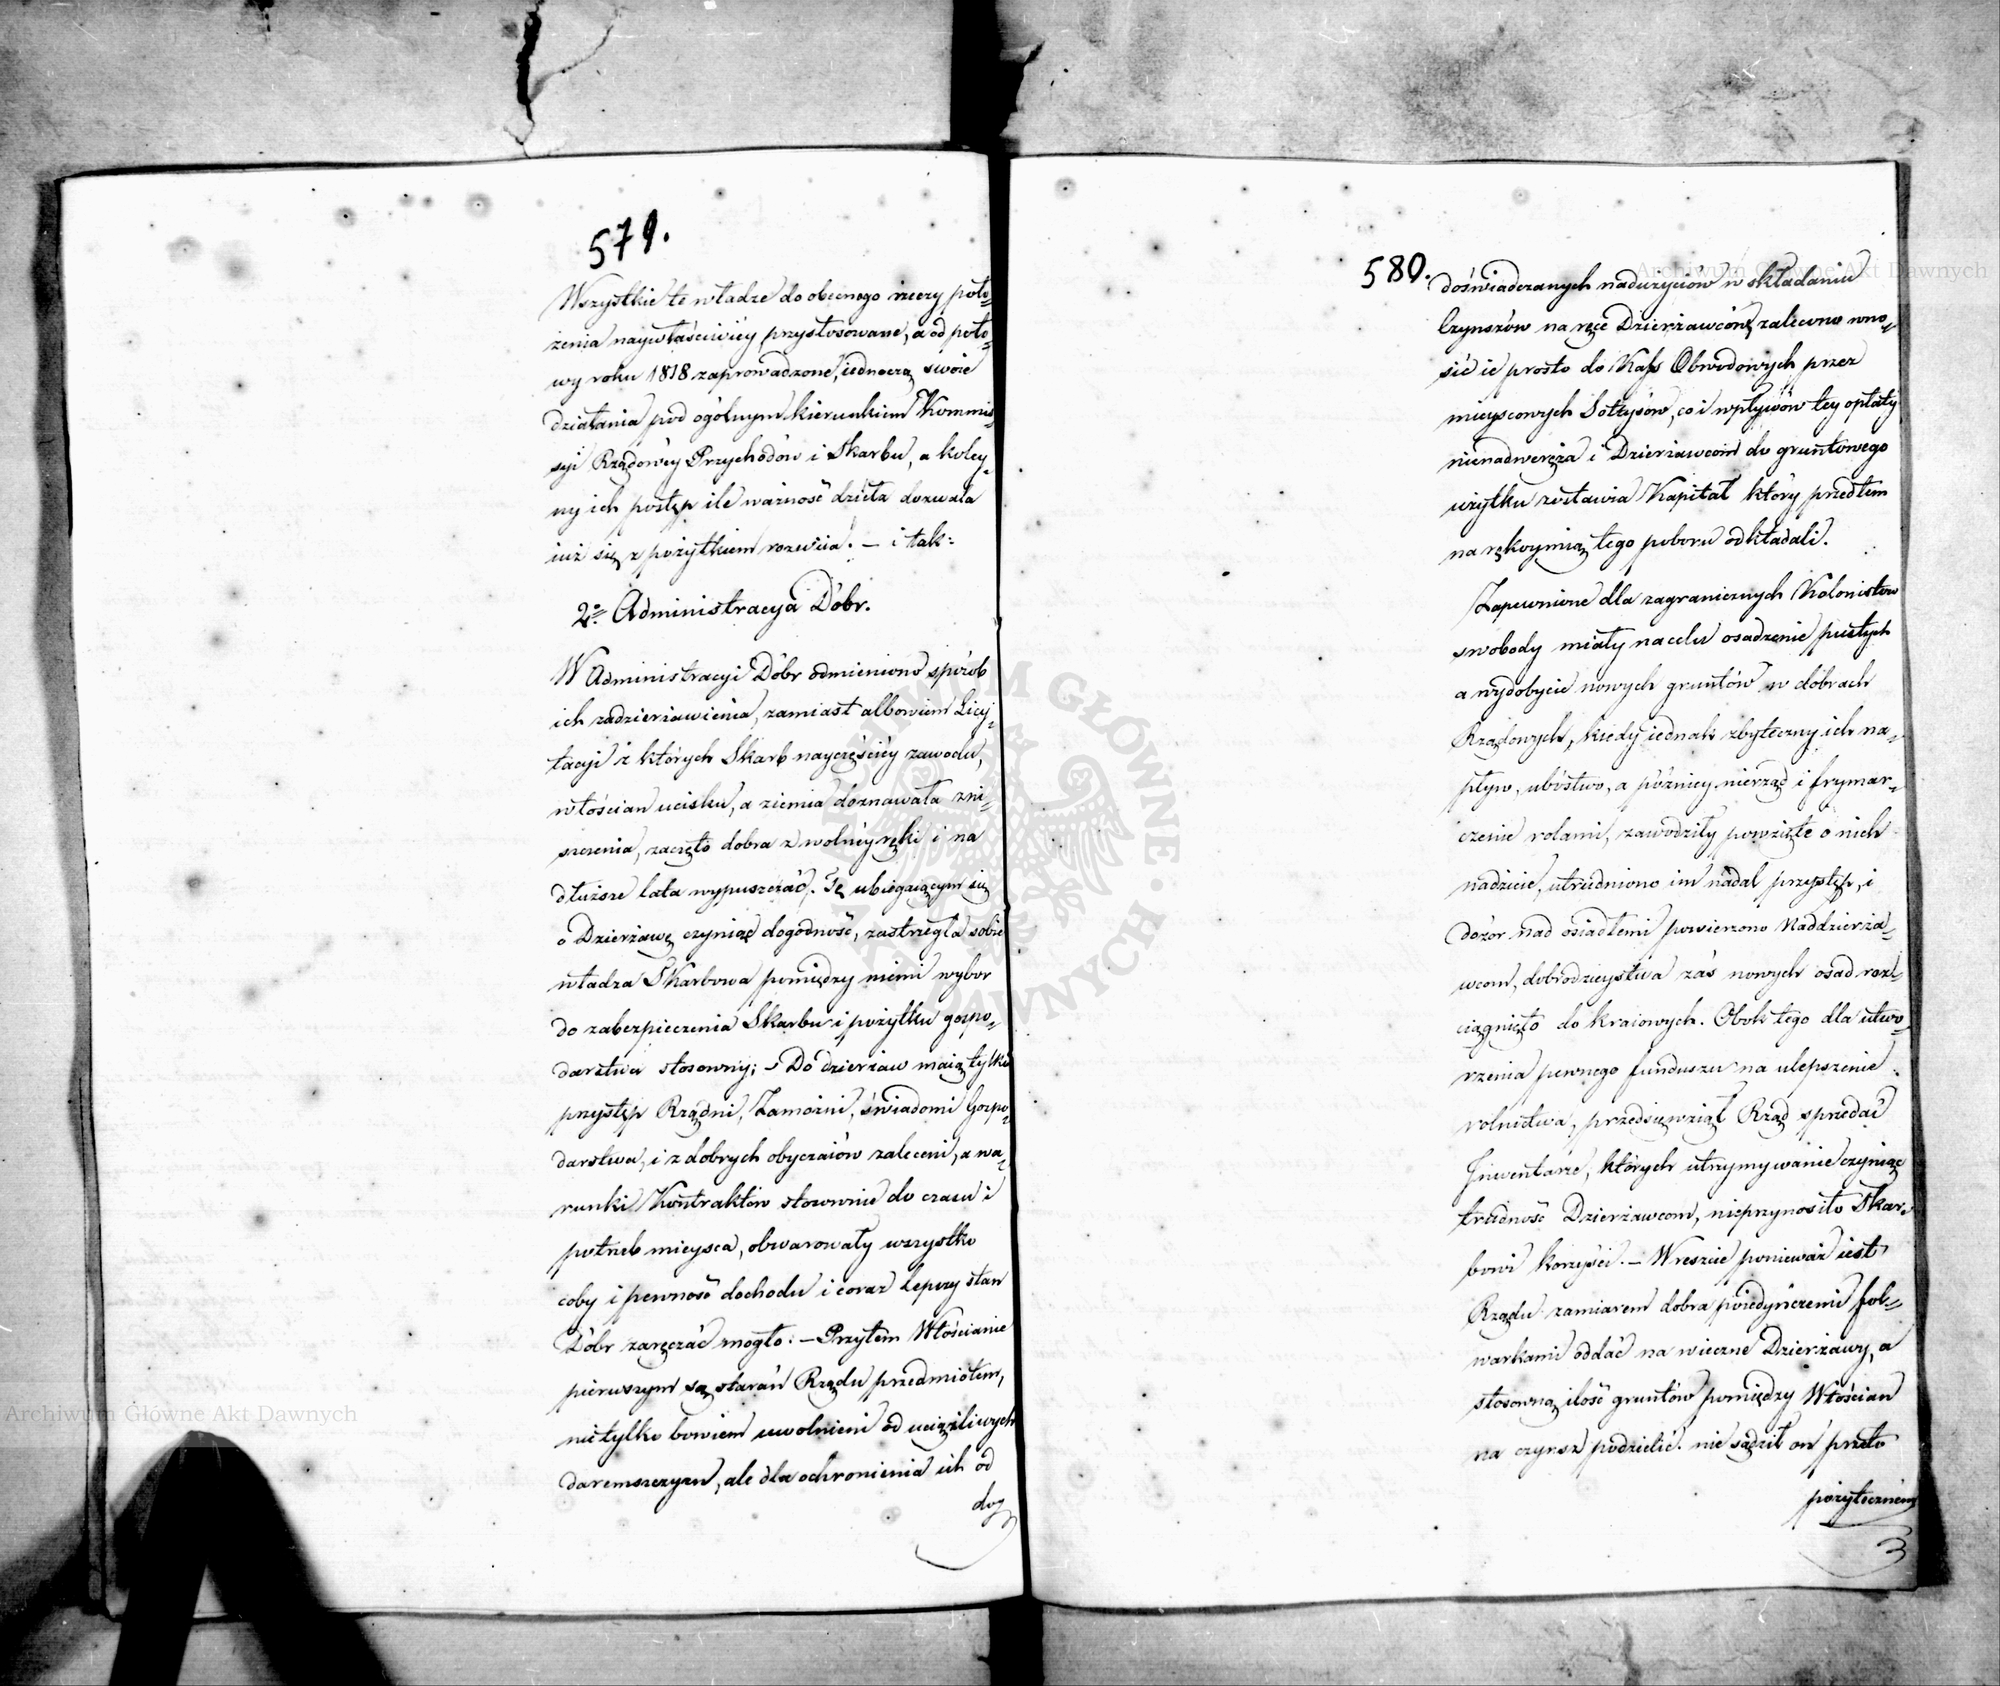 579.
Wszystkie te władze do obecnego rzeczy poło=
żenia naywłaściwiéy przystosowane, a od poło=
wy roku 1818 zaprowadzone, iednoczą swoie
działania pod ogólnym kierunkiem Kommis=
syi Rządowéy Przychodów i Skarbu, a koley=
ny ich postęp ile ważność dzieła dozwala
iuż się z pożytkiem rozwiia. — i tak:
2o Administracya Dóbr.
W Administracyi Dóbr odmieniono sposób
ich zadzierżawienia, zamiast albowiem Licy=
tacyi z których Skarb nayczęściéy zawodu,
włościan ucisku, a ziemia doznawała zni=
szczenia, zaczęto dobra z wolnéy ręki i na
dłuższe lata wypuszczać. Tę ubiegaiącym się
o Dzierżawę czyniąc dogodność, zastrzegła sobie
władza Skarbowa pomiędzy niemi wybor
do zabezpieczenia Skarbu i pożytku gospo=
darstwa stosowny; – Do dzierżaw maią tylko
przystęp Rządni, Zamożni, świadomi Gospo=
darstwa, i z dobrych obyczaiów zaleceni, a wa=
runki Kontraktów stosownie do czasu i
potrzeb mieysca, obwarowały wszystko
coby i pewność dochodu i coraz lepszy stan
Dóbr zaręczać mogło. — Przytem Włościanie
pierwszym są starań Rządu przedmiotem,
nietylko bowiem uwolnieni od uciążliwych
daremszczyzn, ale dla ochronienia ich od
doś
580.
doświadczanych nadużyciow w składaniu
Czynszów na ręce Dzierżawców, zalecono wno=
sić ie prosto do Kass Obwodowych przez
mieyscowych Sołtysów, co i wpływów tey opłaty
nienadweręża i Dzierżawcom do gruntowego
użytku zostawia Kapitał który przedtem
na rękoymią tego poboru odkładali.
Zapewnione dla zagranicznych Kolonistow
swobody miały na celu osadzenie pustych
a wydobycie nowych gruntów w dobrach
Rządowych, kiedy iednak zbyteczny ich na=
pływ, ubóstwo, a późniey nierząd i frymar=
czenie rolami, zawodziły powzięte o nich
nadzieie, utrudniono im nadal przystęp, i
dozór nad osiadłemi powierzono Naddzierża=
wcom, dobrodzieystwa zaś nowych osad roz=
ciągnięto do kraiowych. Obok tego dla utwo=
rzenia pewnego funduszu na ulepszenie
rolnictwa, przedsięwziął Rząd sprzedać
Inwentarze, których utrzymywanie czyniąc
trudność Dzierżawcom, nieprzynosiło Skar=
bowi korzyści. — Wreszcie ponieważ iest
Rządu zamiarem dobra poiedyńczemi fol=
warkami oddać na wieczne Dzierżawy, a
stosowną ilość gruntów pomiędzy Włościan
na czynsz podzielić. nie sądził on przeto
pożytecznem
3
Archiwum Główne Akt Dawnych
ARCHIWUM GŁÓWNE AKT DAWNYCH
Archiwum Główne Akt Dawnych